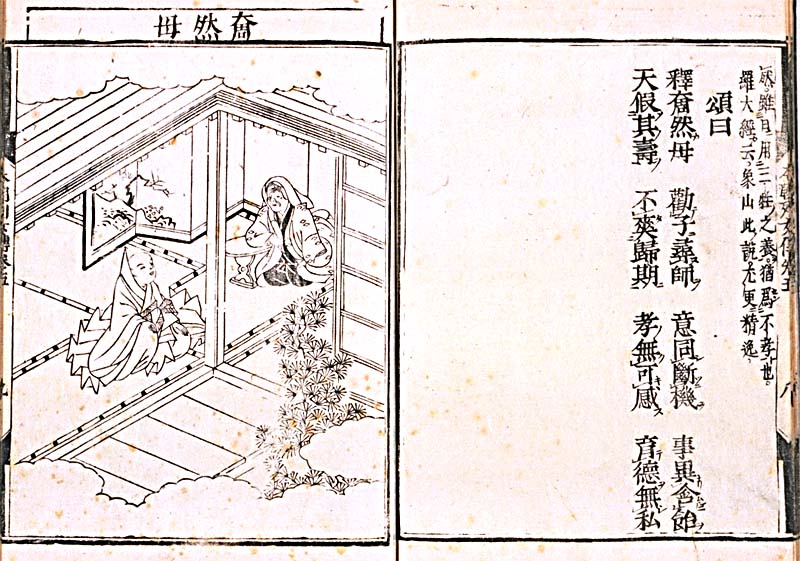 雖日用三牲之養。猶爲不孝也。
羅大經云。象山此說。尤更精逸。
頌曰
釋奝然母 勸子尋師 意同斷機 事異含飴
天假其壽 不爽歸期 孝無可感 育德無私
奝然母
九